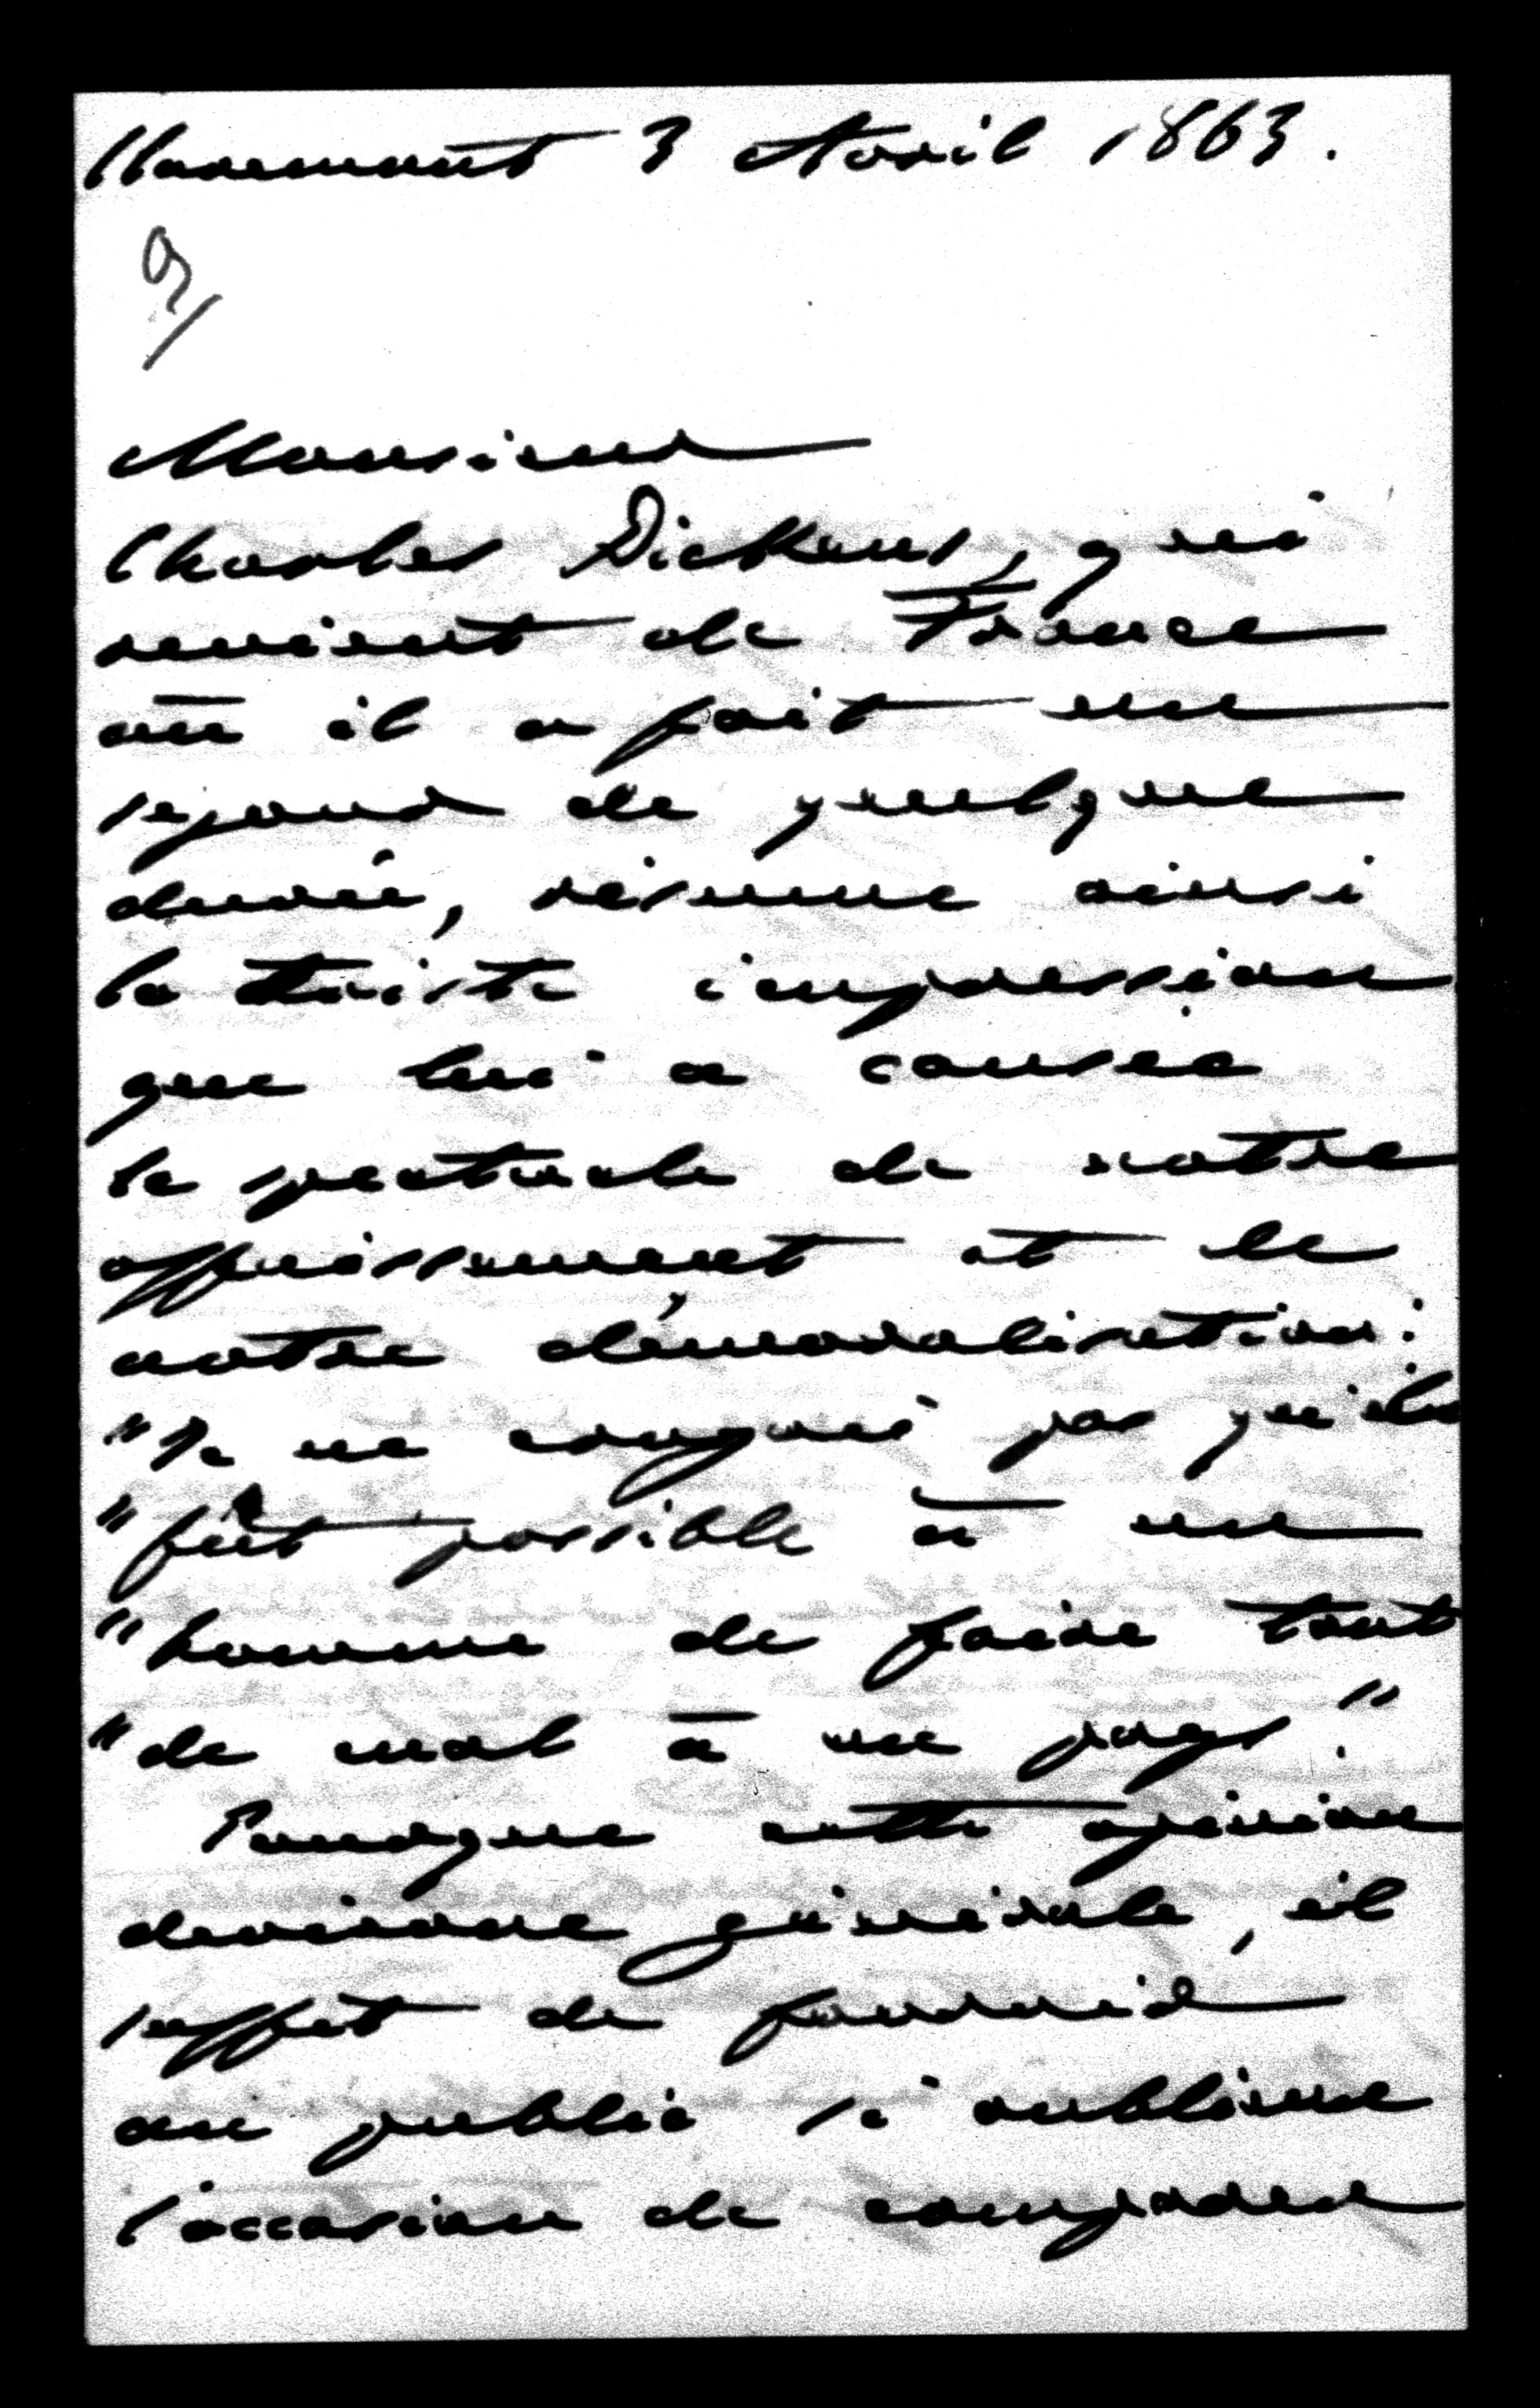 Claremont 3 Avril 1863.
9/
Monsieur
Charles Dickens, qui
revient de France
où il a fait un
sejour de quelque
durée, résume ainsi
la triste impression
que lui a causée
le spectacle de notre
affaissement et de
notre démoralisation:
"Je ne conçois pas qu'il
"fût possible à un
"homme de faire tant
"de mal à un pays."
Pourque cette opinion
devienne générale, il
suffit de fournir
au public si oublieux
l'occasion de comparer